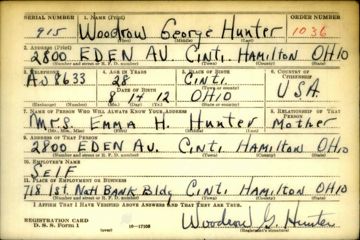 SERIAL NUMBER 1. NAME (Print) ORDER NUMBER
915 Woodrow George Hunter 1036
(First) (Middle) (Last)
2. ADDRESS (Print)
2800 EDEN AV. Cinti. HAMILTON OHIO
(Number and street or R. F. D. number) (Town) (County) (State)
3. TELEPHONE 4. AGE IN YEARS 5. PLACE OF BIRTH 6. COUNTRY OF CITIZENSHIP
28 Cinti. USA
DATE OF BIRTH
8633 8 14 12 OHIO
(Exchange) (Number) (Mo.) (Day) (Yr.) (State or country)
7. NAME OF PERSON WHO WILL ALWAYS KNOW YOUR ADDRESS 8. RELATIONSHIP OF THAT PERSON
Mrs. Emma H. Hunter Mother
(Mr., Mrs., Miss) (First) (Middle) (Last)
9. ADDRESS OF THAT PERSON
2800 EDEN AV. Cinti. HAMILTON OHIO
(Number and street or R. F. D. number) (Town) (County) (State)
10. EMPLOYER'S NAME
SELF
11. PLACE OF EMPLOYMENT OR BUSINESS
718 1st. Natl BANK Bldg Cinti. HAMILTON OHIO
(Number and street or R. F. D. number) (Town) (County) (State)
I AFFIRM THAT I HAVE VERIFIED ABOVE ANSWERS AND THAT THEY ARE TRUE.
REGISTRATION CARD
D. S. S. Form 1 16—17105 Woodrow G. Hunter